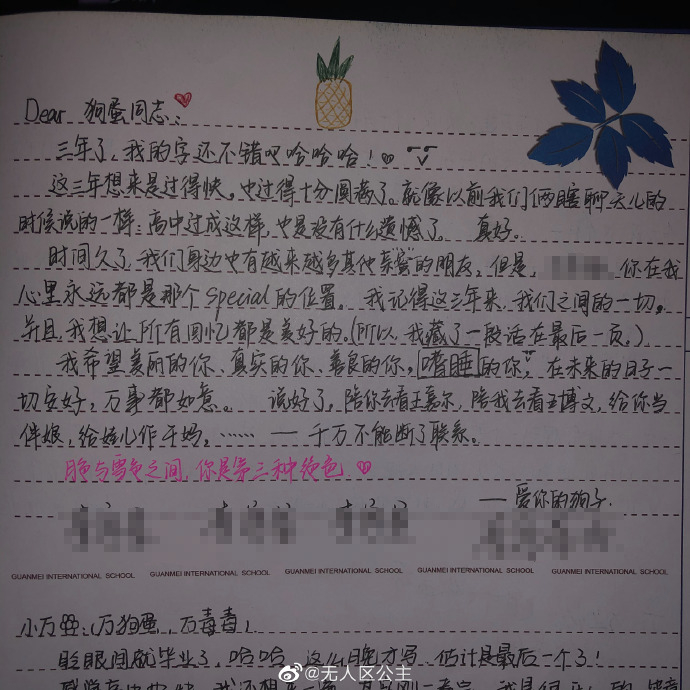 Dear 狗蛋同志:
三年了,我的字还不错吧哈哈哈!
这三年想来是过得快,也过得十分圆满了。就像以前我们俩瞎聊天儿的
时候说的一样:高中过成这样,也是没有什么遗憾了。 真好。
时间久了,我们身边也有越来越多其他亲密的朋友,但是, 你在我
心里永远都是那个special的位置。 我记得这三年来,我们之间的一切。
并且,我想让所有回忆都是美好的。(所以,我藏了一段话在最后一页。)
我希望美丽的你、真实的你、善良的你,嗜睡的你,在未来的日子一
切安好,万事都如意。 说好了,陪你去看王嘉尔,陪我去看王博文,给你当
伴娘,给娃儿作干妈,…… — 千万不能断了联系。
月色与雪色之间,你是第三种绝色
——爱你的狗子.
GUANMEI INTERNATIONAL SCHOOL GUANMEI INTERNATIONAL SCHOOL GUANMEI INTERNATIONAL SCHOOL GUANMEI INTERNATIONAL SCHOOL GUANMEI INTERNATIONAL SCHOOL
小万 :(万狗蛋,万毒毒)
眨眼间就毕业了,哈哈哈 这么晚才写 估计是最后一个了!
@无人区公主